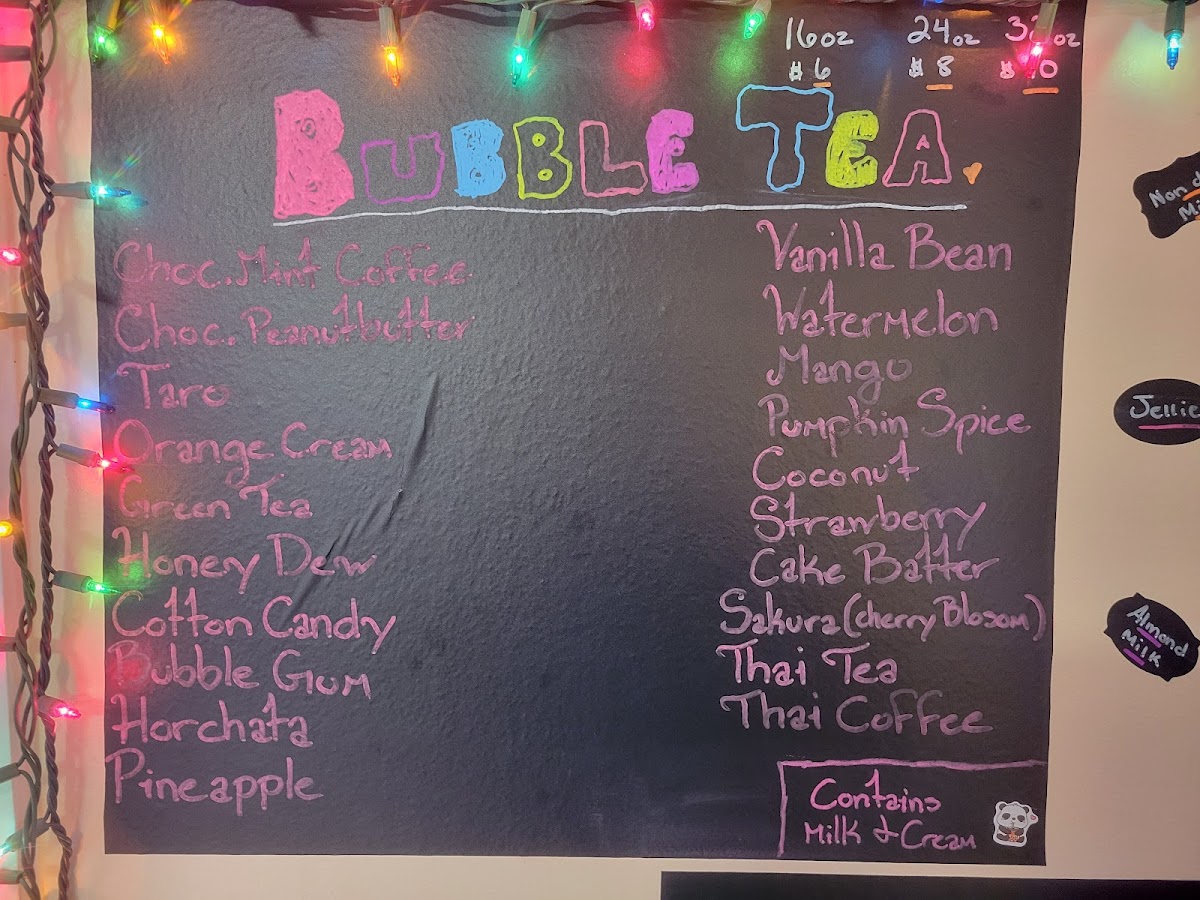 16oz 24oz 32oz
$6 $8 $10
BUBBLE TEA.
Choc.Mint Coffee
Choc. Peanutbutter
Taro
Orange Cream
Green Tea
Honey Dew
Cotton Candy
Bubble Gum
Horchata
Pineapple
Vanilla Bean
Watermelon
Mango
Pumpkin Spice
Coconut
Strawberry
Cake Batter
Sakura (cherry Blosom)
Thai Tea
Thai Coffee
Contains
Milk & Cream
Non
Jellie
Almond
Milk